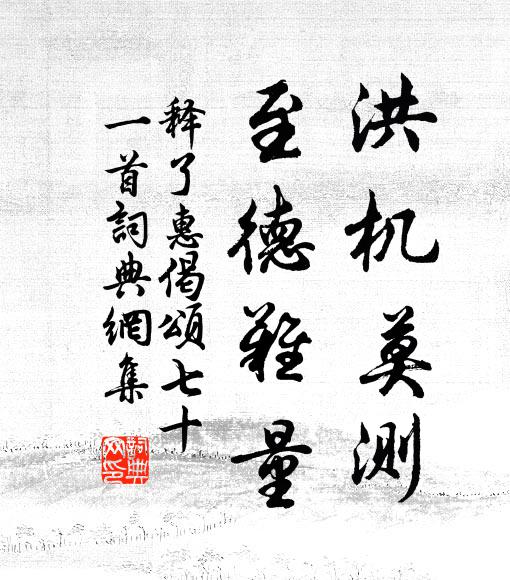 洪机莫测
至德難量
释了惠偈頌七十
一首詞典網集
詞典
网印